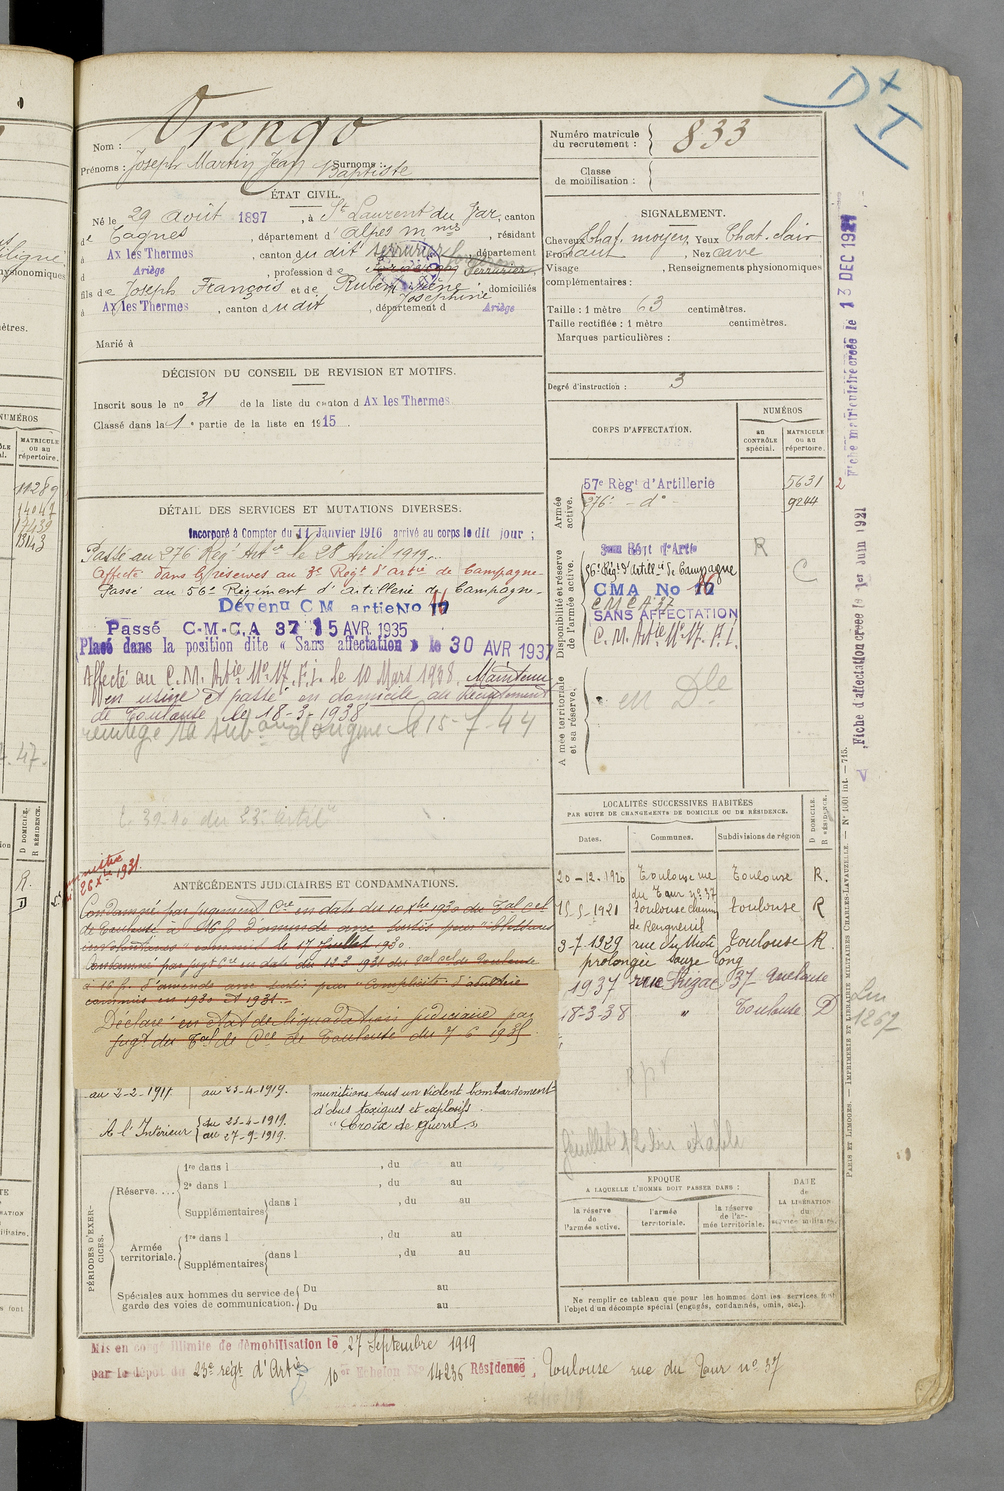 Nom : Orengo
Prénoms : Joseph Martin Jean Baptiste Surnoms :
ÉTAT CIVIL.
Né le 29 août 1897, à St Laurent du Var, canton
de Cagnes, département d'Alpes Mmes, résidant
à Ax les Thermes, canton du dit, département
d Ariège, profession de Serrurier
fils de Joseph François et de Rubert Irène Joséphine, domiciliés
à Ax les Thermes, canton dudit, département d Ariège
Marié à
DÉCISION DU CONSEIL DE REVISION ET MOTIFS.
Inscrit sous le no 31 de la liste du canton d Ax les Thermes
Classé dans la 1e partie de la liste en 1915.
DÉTAIL DES SERVICES ET MUTATIONS DIVERSES.
Incorporé à Compter du 11 Janvier 1916 arrivé au corps le dit jour ;
Passé au 276 Régt Artie le 28 Avril 1919.
Affecté dans les réserves au 3e Régt d'Artie de Campagne
Passé au 56e Régiment d'Artillerie de Campagne
Devenu C M artie No 16
Passé C-M-C.A 37 15 AVR. 1935
Placé dans la position dite « Sans affectation » le 30 AVR 1937
Affecté au C.M. Artie No 17. F.i. le 10 Mars 1938. Maintenu
en usine et passé en domicile au Recrutement
de Toulouse le 18-3-1938
réintégré sa subon d'origine le 15-7-44
ANTÉCÉDENTS JUDICIAIRES ET CONDAMNATIONS.
26 Xbre 1931
Condamné par jugement Cre en date du 10 Xbre 1930 du Tal Cel
de Toulouse à 16 f. d'amende avec sursis pour "blessures
involontaires" commis le 17 Juillet 1930.
Condamné par jugt Cre en date du 12 3 1931 du Tal Cel de Toulouse
à 16 f. d'amende avec sursis pour "Complicité d'adultère
commis en 1930 et 1931.
Déclaré en état de liquidation judiciaire par
jugt du Tal de Cce de Toulouse du 7 6 1935
au 2-2-1917. au 23-4-1919.
A l'Intérieur { du 23-4-1919.
au 27-9-1919.
munitions sous un violent bombardement
d'obus toxiques et explosifs.
"Croix de guerre"
PÉRIODES D'EXERCICES.
Réserve....
1re dans l , du au
2e dans l , du au
Supplémentaires dans l , du au
Armée territoriale.
1re dans l , du au
Supplémentaires dans l , du au
Spéciales aux hommes du service de garde des voies de communication.
Du au
Du au
Mis en congé illimité de démobilisation le 27 Septembre 1919
par le dépôt du 23e régt d'Artie 10e Echelon No 14236 Résidence, Toulouse rue du Taur no 37
Numéro matricule du recrutement : 833
Classe de mobilisation :
SIGNALEMENT.
Cheveux Chat. moyen Yeux Chat. clair
Front haut, Nez cave
Visage , Renseignements physionomiques
complémentaires :
Taille : 1 mètre 63 centimètres.
Taille rectifiée : 1 mètre centimètres.
Marques particulières :
Degré d'instruction : 3
CORPS D'AFFECTATION.
NUMÉROS
au CONTRÔLE spécial.
MATRICULE ou au répertoire.
Armée active.
57e Régt d'Artillerie 5631
276e - do - 9244
Disponibilité et réserve de l'armée active.
56e Régt d'Artillie de Campagne
CMA No 16
C M C A 37
SANS AFFECTATION
C. M. Artie No 17. F. I.
R
C
Armée territoriale et sa réserve.
en Dle
LOCALITÉS SUCCESSIVES HABITÉES
PAR SUITE DE CHANGEMENTS DE DOMICILE OU DE RÉSIDENCE.
Dates. Communes. Subdivisions de région
D DOMICILE. R RÉSIDENCE.
20-12-1920 Toulouse rue du Taur no 37 Toulouse R.
15-5-1921 Toulouse Toulouse R
3-7-1929 Toulouse R
prolongée
1937 rue 37 Toulouse
18-3-38 " Toulouse D
EPOQUE
A LAQUELLE L'HOMME DOIT PASSER DANS :
la réserve de l'armée active.
l'armée territoriale.
la réserve de l'armée territoriale.
DATE de LA LIBÉRATION du service militaire.
Ne remplir ce tableau que pour les hommes dont les services font
l'objet d'un décompte spécial (engagés, condamnés, omis, etc.).
Fiche matriculaire créée le 13 DEC 1921
Fiche d'affectation créée le 1er Juin 1921
PARIS ET LIMOGES. — IMPRIMERIE ET LIBRAIRIE MILITAIRES CHARLES-LAVAUZELLE. — No 1001 int. — 715.